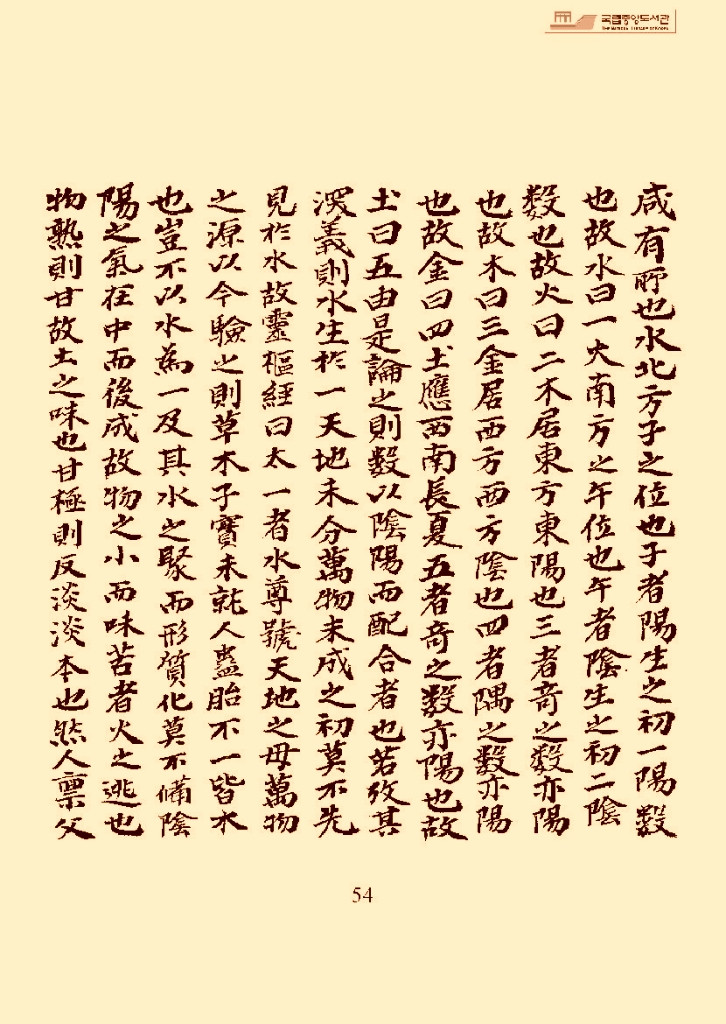 국립중앙도서관
THE NATIONAL LIBRARY OF KOREA
咸有所也水北方子之位也子者陽生之初一陽數
也故水曰一火南方之午位也午者陰生之初二陰
數也故火曰二木居東方東陽也三者奇之數亦陽
也故木曰三金居西方西方陰也四者隅之數亦陽
也故金曰四土應西南長夏五者奇之數亦陽也故
土曰五由是論之則數以陰陽而配合者也若攷其
深義則水生於一天地未分萬物未成之初莫不先
見於水故靈樞經曰太一者水尊號天地之母萬物
之源以今驗之則草木子實未就人蟲胎不一皆水
也豈不以水爲一及其水之聚而形質化莫不備陰
陽之氣在中而後成故物之小而味苦者火之逃也
物熟則甘故土之味也甘極則反淡淡本也然人稟父
54